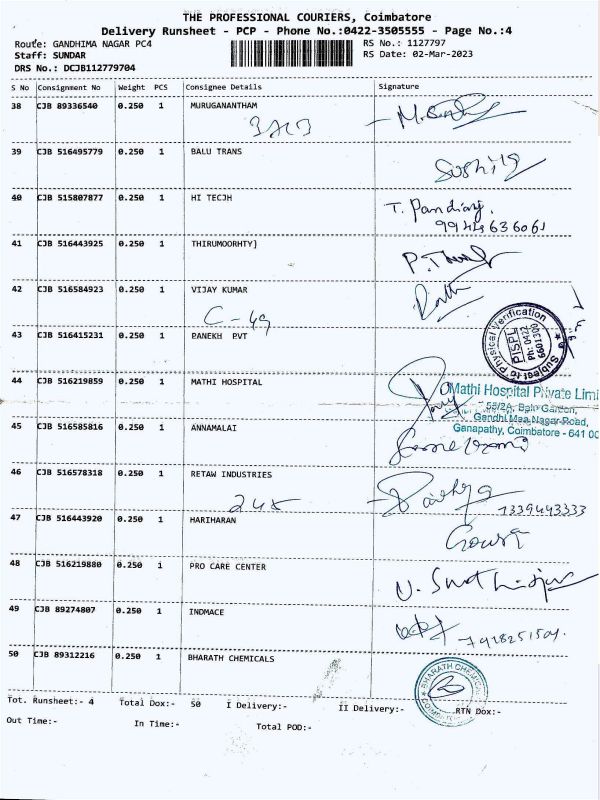 THE PROFESSIONAL COURIERS, Coimbatore
Delivery Runsheet - PCP - Phone No.:0422-3505555 - Page No.:4
Route: GANDHIMA NAGAR PC4
RS No.: 1127797
Staff: SUNDAR
RS Date: 02-Mar-2023
DRS No.: DCJB112779704
S No Consignment No Weight PCS Consignee Details Signature
38 CJB 89336540 0.250 1 MURUGANANTHAM
39 CJB 516495779 0.250 1 BALU TRANS
40 CJB 515807877 0.250 1 HI TECJH
T. Pandiay.
9944636061
41 CJB 516443925 0.250 1 THIRUMOORHTY]
42 CJB 516584923 0.250 1 VIJAY KUMAR
C-49
43 CJB 516415231 0.250 1 PANEKH PVT
Subject to Physical Verification
PISPL
Ph: 0422
6601300
44 CJB 516219859 0.250 1 MATHI HOSPITAL
Mathi Hospital Private Limi
55/2A, Garden,
Gandhi Maa Nagar Road,
Ganapathy, Coimbatore - 641 00
45 CJB 516585816 0.250 1 ANNAMALAI
46 CJB 516578318 0.250 1 RETAW INDUSTRIES
245
7339443333
47 CJB 516443920 0.250 1 HARIHARAN
48 CJB 516219880 0.250 1 PRO CARE CENTER
49 CJB 89274807 0.250 1 INDMACE
7428251504.
50 CJB 89312216 0.250 1 BHARATH CHEMICALS
BHARATH CHEMICALS
Tot. Runsheet:- 4 Total Dox:- 50 I Delivery:- II Delivery:- RTN Dox:-
Out Time:- In Time:- Total POD:-